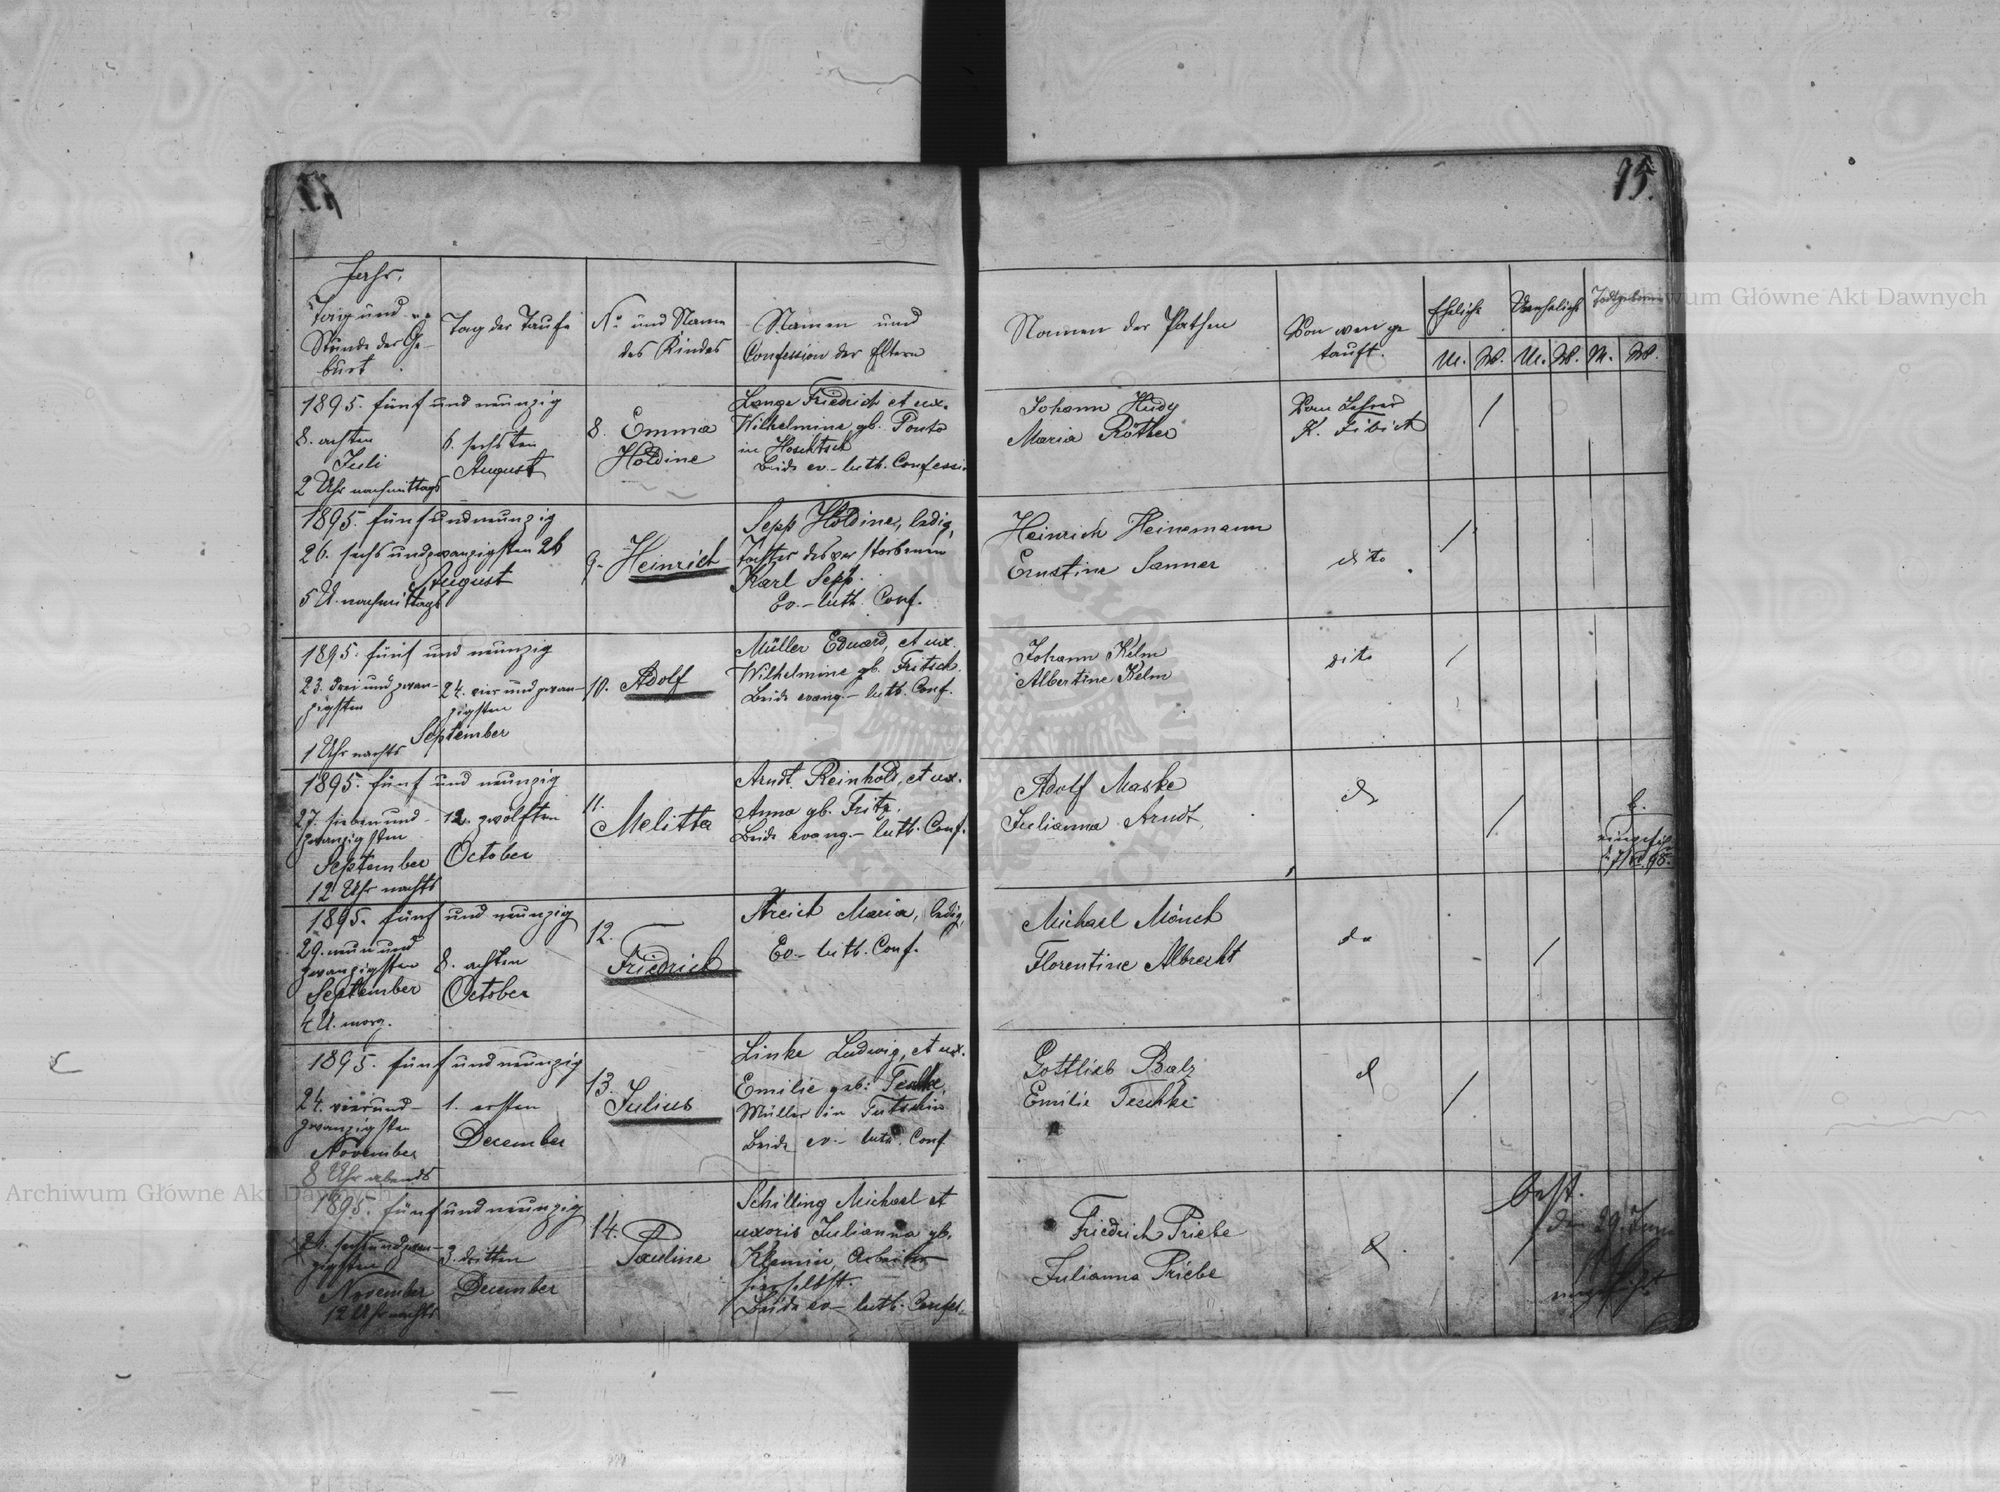 15.
Jahr,
Tag und
Stunde der Ge-
burt
Tag der Taufe
No und Name
des Kindes
Namen und
Confession der Eltern
Namen der Pathen
Von wem ge
tauft.
Ehelich
Unehelich
M. W. M. W. M. W.
1895. fünf und neunzig
8. achten
Juli
2 Uhr nachmittags
6. sechsten
August
8. Emma
Holdine
Lange Friedrich et ux.
Wilhelmine gb. Ponto
in Hoschtsch
Beide ev.-luth. Confessi
Johann Hudy
Maria Rother
Vom Lehrer
K. Fibich
1895. fünf und neunzig
26. sechs und zwanzigsten 26
August
5 U. nachmittags
9. Heinrich
Sepp Holdine, ledig,
Tochter des verstorbenen
Karl Sepp.
Ev.-luth. Conf.
Heinrich Heinemann
Ernstine Sanner
dito
1895. fünf und neunzig
23. drei und zwan-
zigsten
24. vier und zwan-
zigsten
September
1 Uhr nachts
10. Adolf
Müller Eduard, et ux.
Wilhelmine gb. Fritsch
Beide evang.-luth. Conf.
Johann Kelm
Albertine Kelm
dito
1895. fünf und neunzig
27. sieben und
zwanzigsten
September
12 Uhr nachts
12. zwölften
October
11.
Melitta
Arndt Reinhold, et ux.
Anna gb. Fritz.
Beide evang.-luth. Conf.
Adolf Maske
Julianna Arndt
1895. fünf und neunzig
29. neun und
zwanzigsten
September
4 U. morg.
8. achten
October
12.
Friedrich
Streich Maria, ledig,
Ev-luth. Conf.
Michael Mönch
Florentine Albrecht
do
1895. fünf und neunzig
24. vier und-
zwanzigsten
November
8 Uhr abends
1. ersten
December
13.
Julius
Linke Ludwig, et ux.
Emilie geb:
Müller in Tutschin
Beide ev-luth. Conf
Gottlieb Balz
Emilie Teschke
1895. fünf und neunzig
zigsten
November
12 Uhr nachts
3. dritten
December
14.
Pauline
Schilling Michael et
uxoris Julianna gb.
Klemin, Arbeiter
hierselbst.
Beide ev-luth. Confes-
Friedrich Priebe
Julianna Priebe
best.
Archiwum Główne Akt Dawnych
Archiwum Główne Akt Dawnych